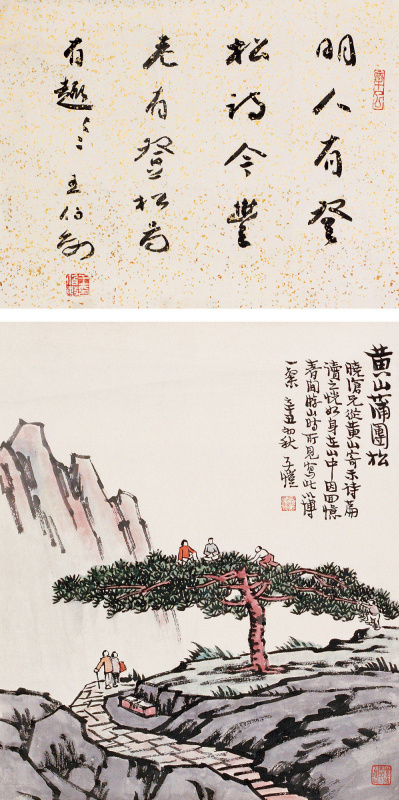 明人有登
松詩今豐
老有登松图
有趣々 王伯敏
黄山蒲團松
曉滄兄從黄山寄来詩篇
讀之恍如身在山中因回憶
春間游山時所見寫此以博
一粲 辛丑初秋 子愷